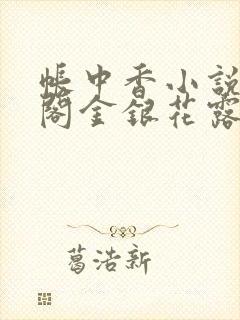 帳中香小說
閣金銀花露
葛浩新